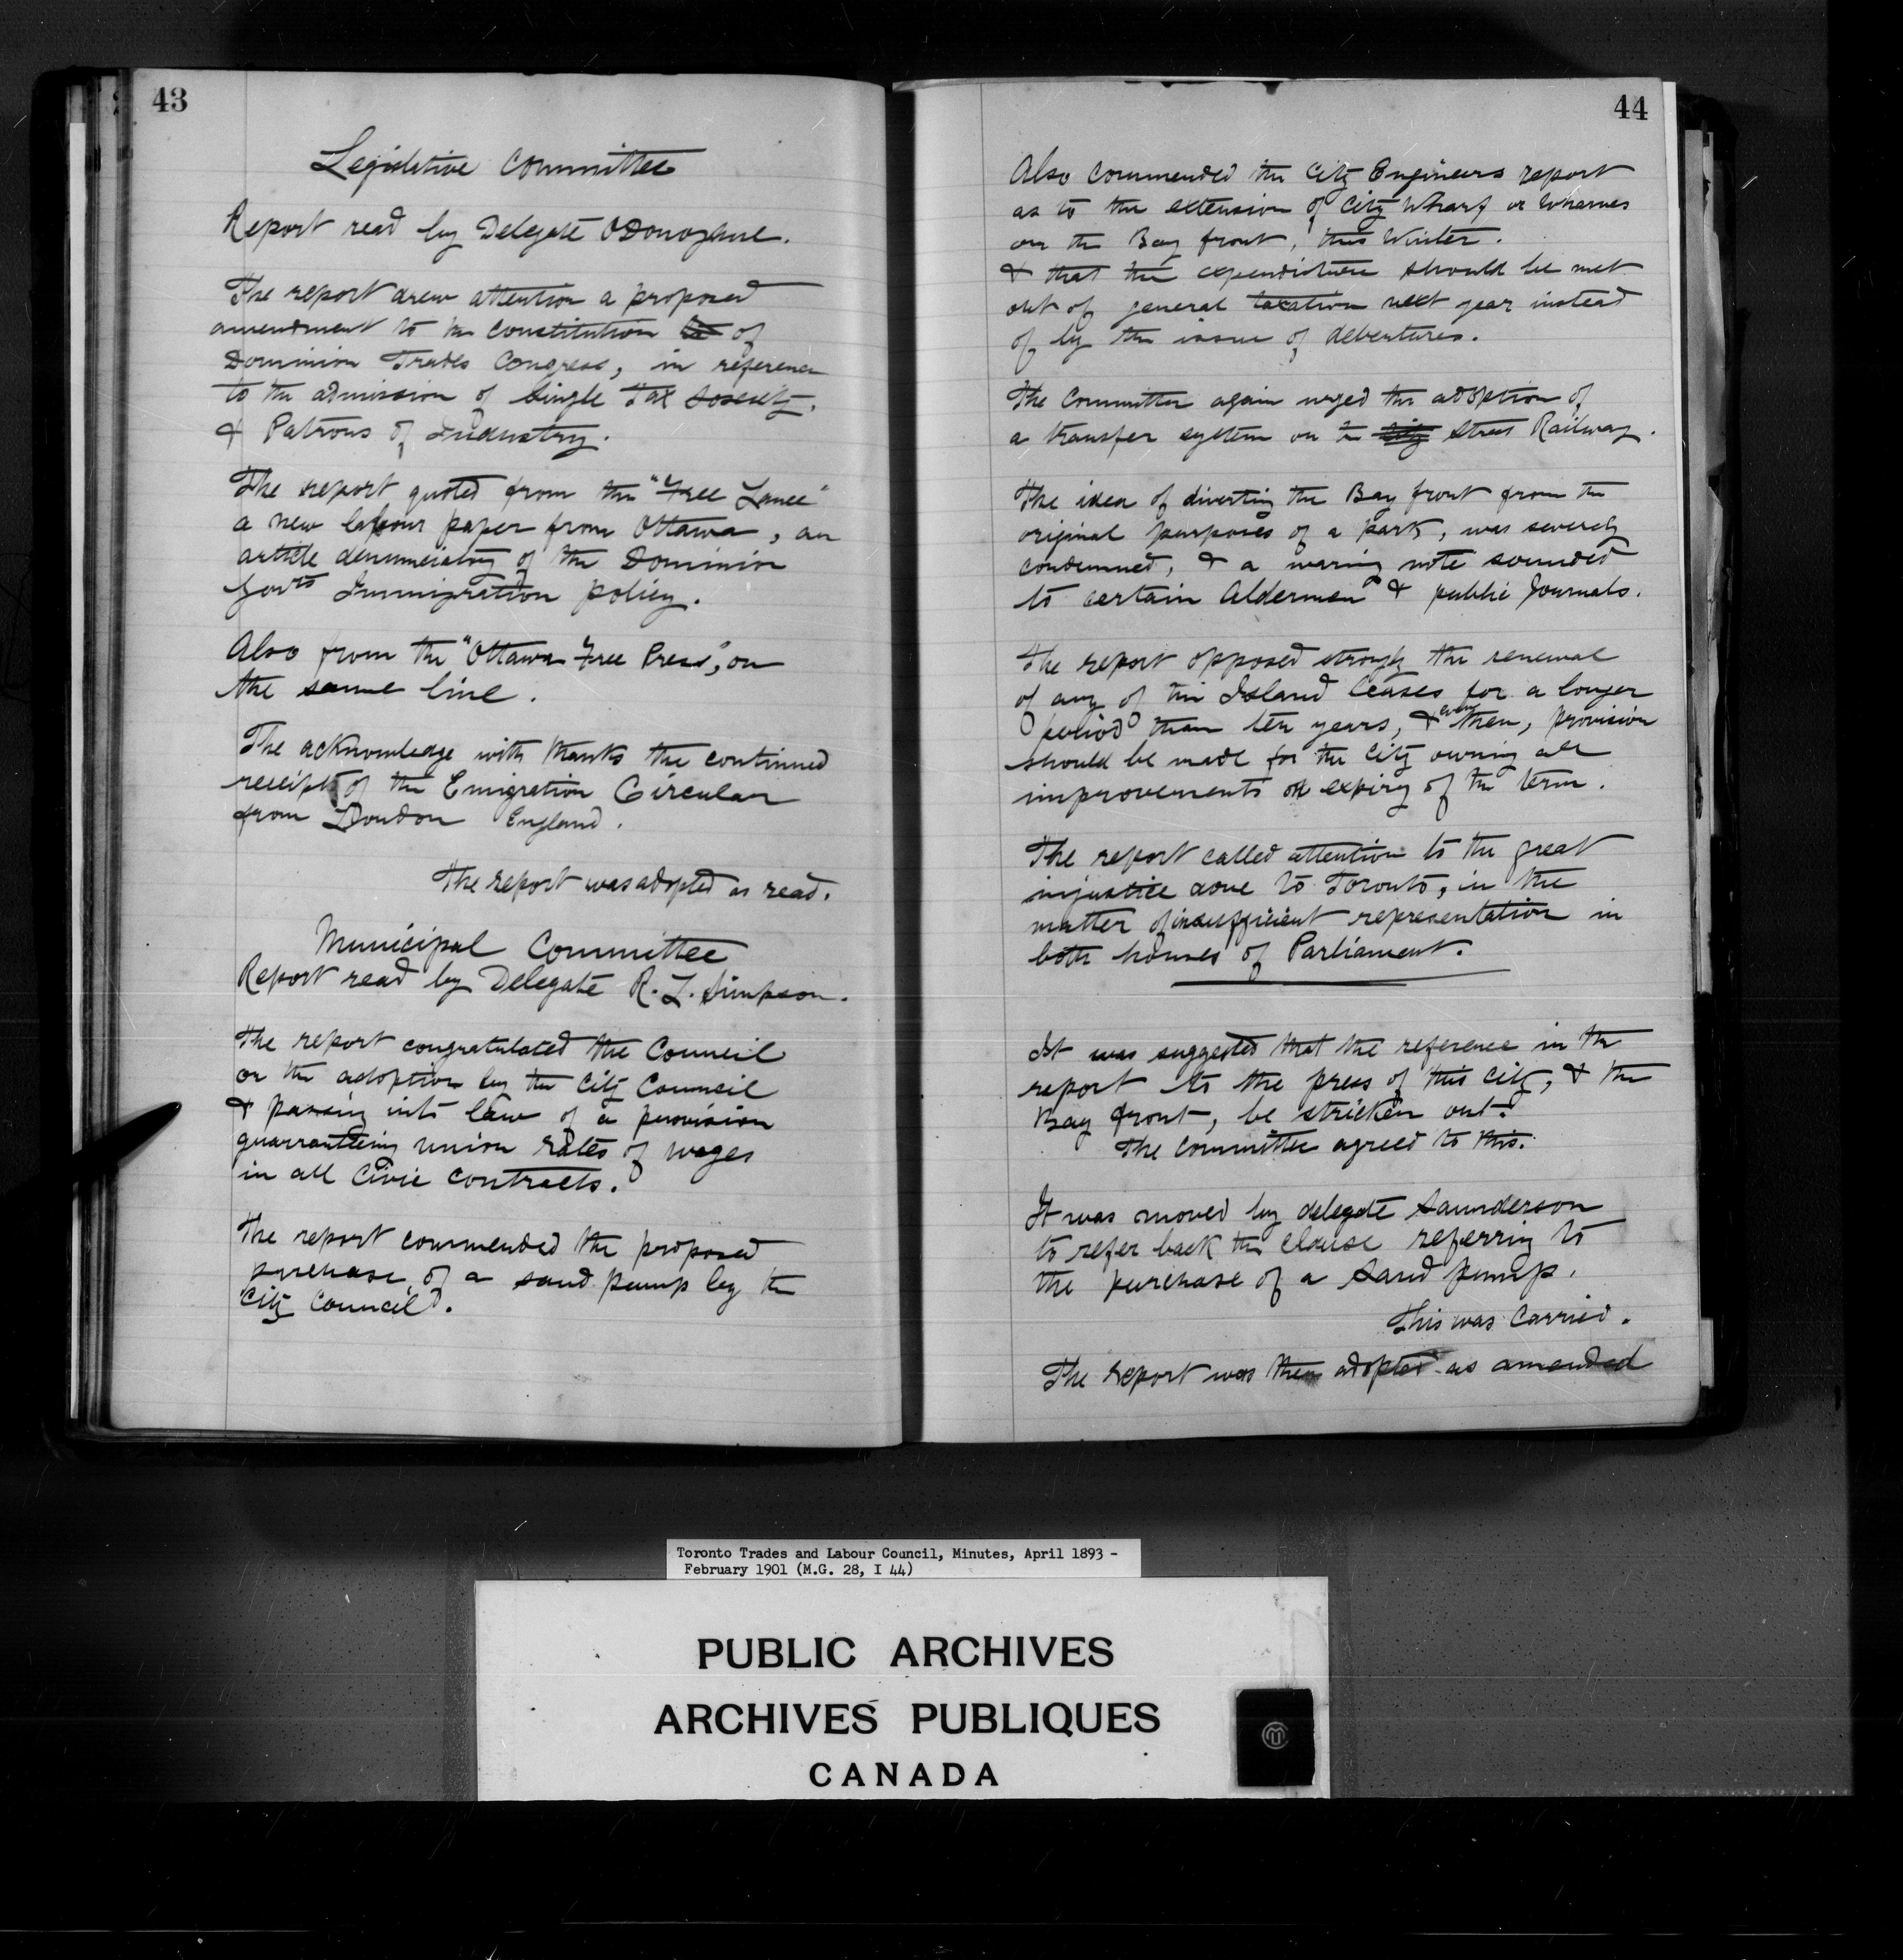 43
Legislative Committee
Report read by Delegate O'Donoghue.
The report drew attention a proposed
amendment to the Constitution of
Dominion Trades Congress, in reference
to the admission of Single Tax Society,
& Patrons of Industry.
The report quoted from the "Free Lance"
a new labour paper from Ottawa, an
article denunciatory of the Dominion
Govts Immigration policy.
Also from the "Ottawa Free Press", on
the same line.
The acknowledge with thanks the continued
receipt of the Emigration Circular
from London England.
The report was adopted as read.
Municipal Committee
Report read by Delegate R. L. Simpson.
The report congratulated the Council
on the adoption by the City Council
& passing into law of a provision
guarranteeing union rates of wages
in all Civic contracts.
The report commended the proposed
purchase of a sand pump by the
City Council.
44
Also commended the City Engineers report
as to the extension of City Wharf or Wharves
on the Bay front, this Winter.
& that the expenditure should be met
out of general taxation next year instead
of by the issue of debentures.
The Committee again urged the adoption of
a transfer system on the city Street Railway.
The idea of diverting the Bay front from the
original purposes of a park, was severely
condemned, & a waring note sounded
to certain Aldermen & public Journals.
The report opposed strongly the renewal
of any of the Island leases for a longer
period than ten years, & even then, provision
should be made for the City owning all
improvements on expiry of the term.
The report called attention to the great
injustice done to Toronto, in the
matter of insufficient representation in
both houses of Parliament.
It was suggested that the reference in the
report to the press of this city, & the
Bay front, be stricken out.
The Committee agreed to this.
It was moved by delegate Saunderson
to refer back the clause referring to
the purchase of a Sand pump.
This was Carried.
The report was then adopted as amended
Toronto Trades and Labour Council, Minutes, April 1893 -
February 1901 (M.G. 28, I 44)
PUBLIC ARCHIVES
ARCHIVES PUBLIQUES
CANADA